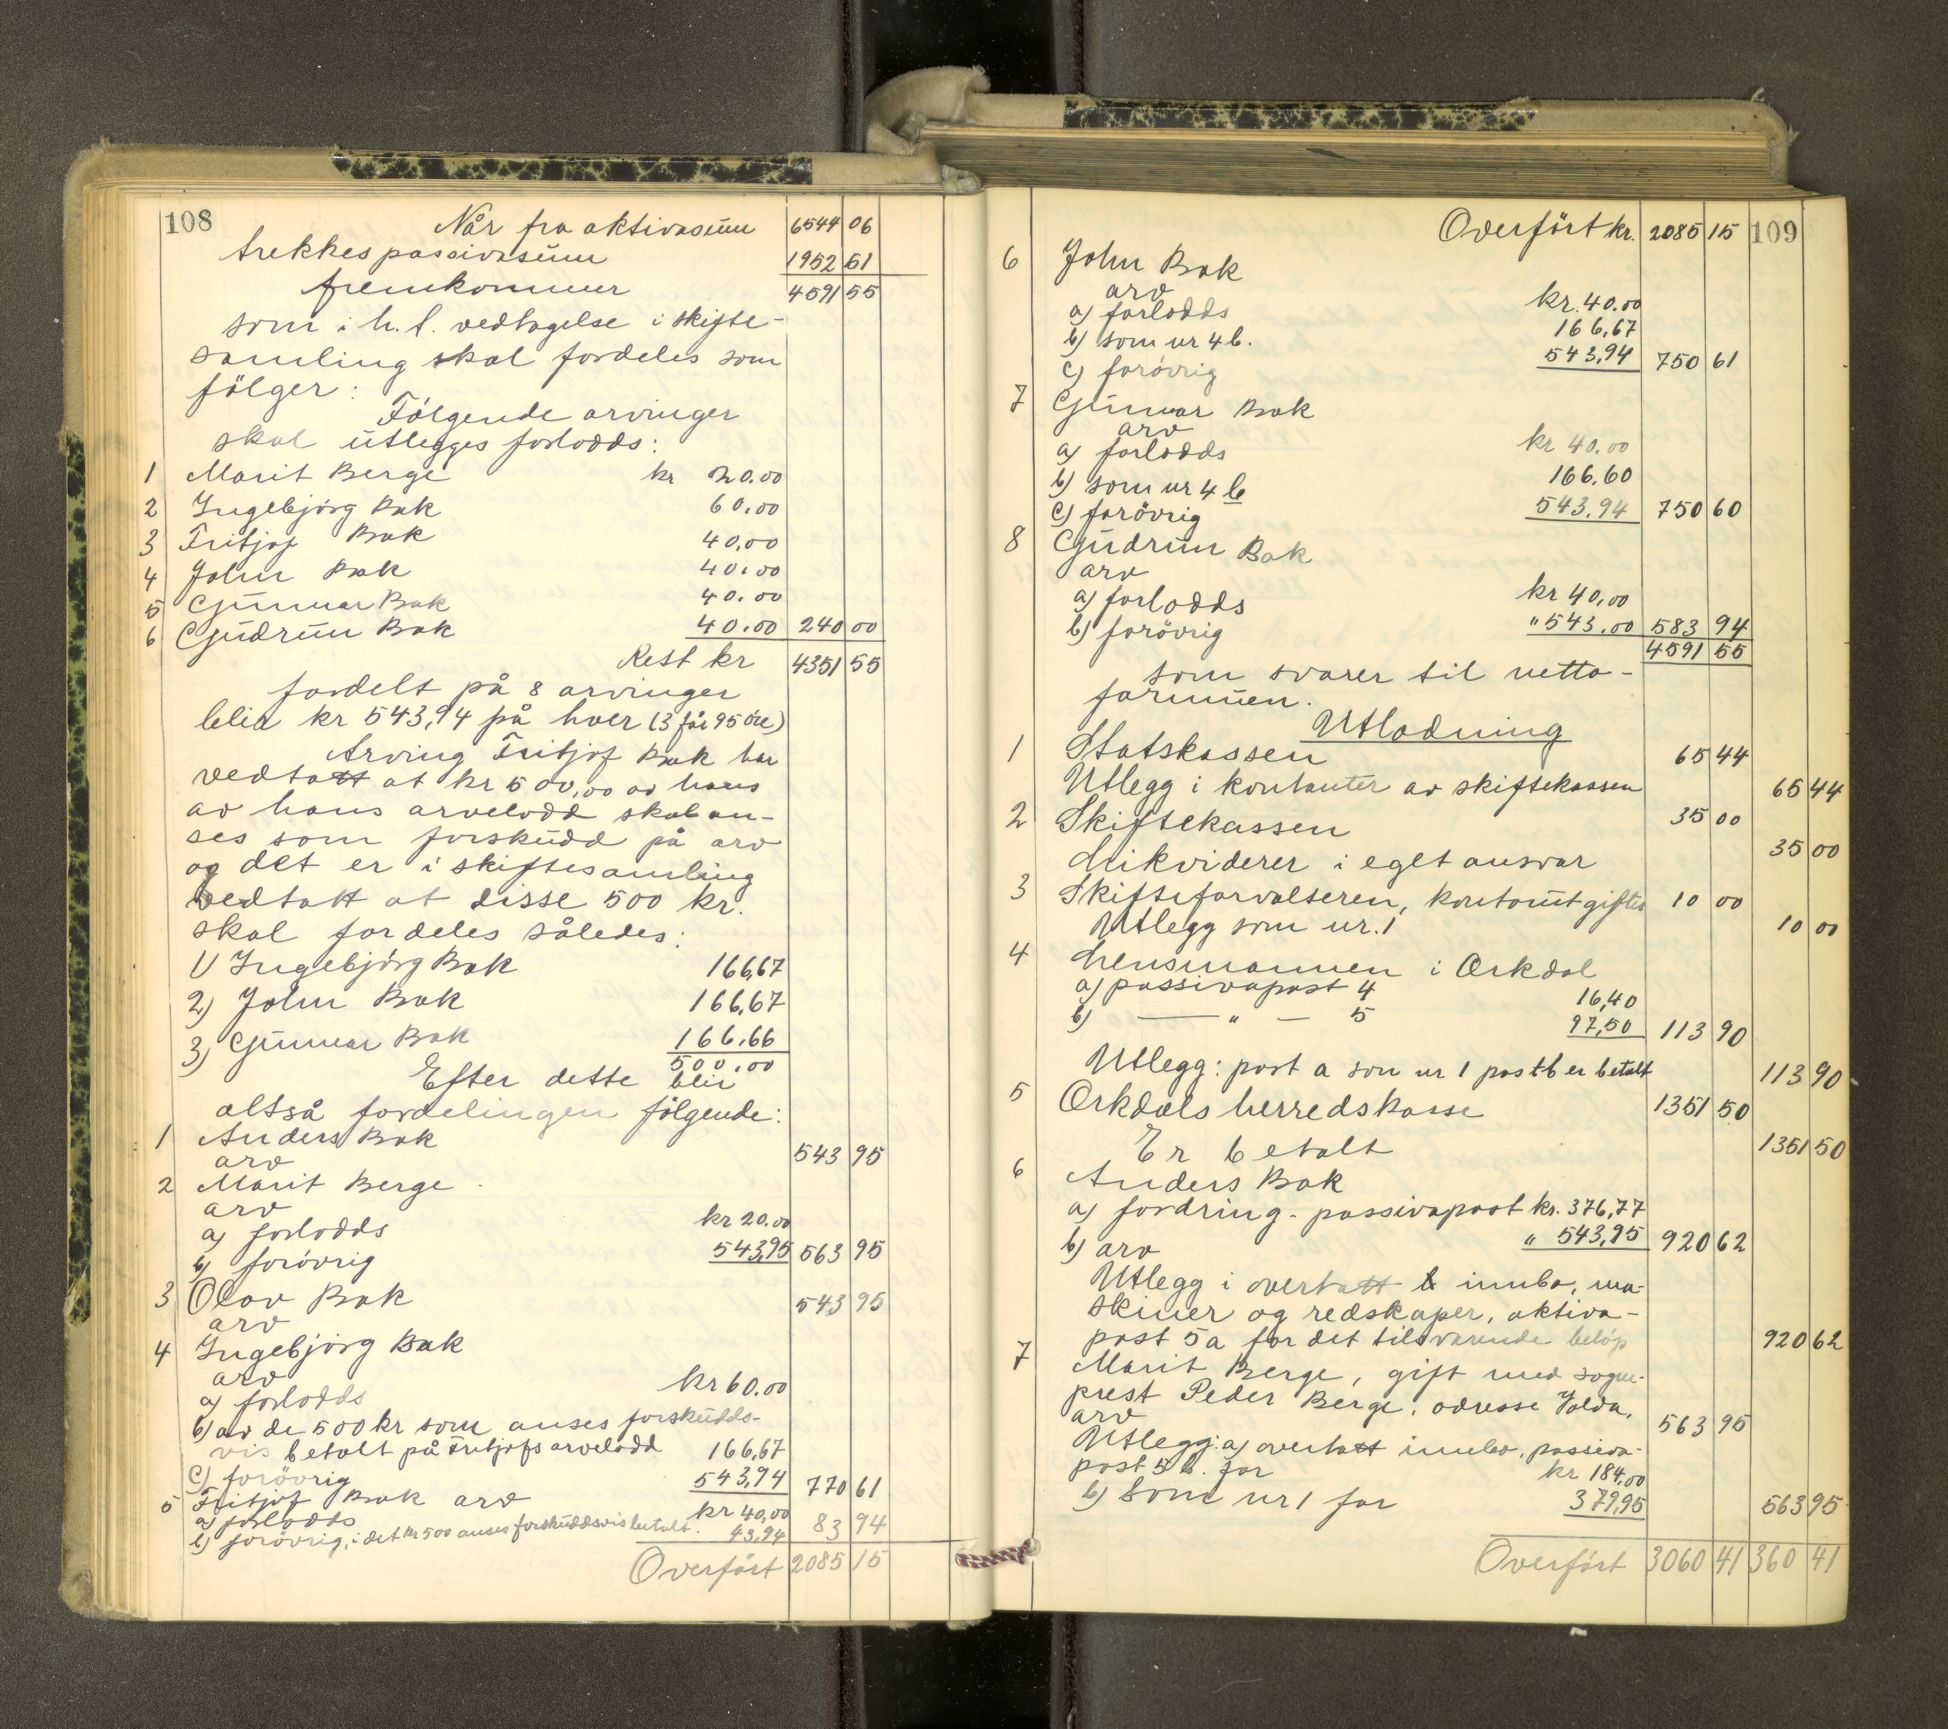 108
Når fra aktivasum 6544 06
trekkes passivasum 1952 51
fremkommer 4591 55
som i h. t. vedtagelse i skifte-
samling skal fordeles som
følger:
Følgende arvinger
skal utlegges forlodds:
1 Marit Berge kr 20.00
2 Ingebjörg Bak 60.00
3 Fritjof Bak 40,00
4 John Bak 40.00
5 Gunnar Bak 40.00
6 Gudrun Bak 40.00 240 00
Rest kr 4351 55
fordelt på 8 arvinger
blir kr 543,94 på hver (3 får 95 öre)
Arving Fritjof Bak har
vedtatt at kr 500,00 av hans
av hans arvelodd skal an-
ses som forskudd på arv
og det er i skiftesamling
vedtatt at disse 500 kr.
skal fordeles således:
1) Ingebjörg Bak 166,67
2) John Bak 166,67
3) Gunnar Bak 166.66
500.00
Efter dette blir
altså fordelingen følgende:
1 Anders Bak
arv 543 95
2 Marit Berge
arv
a) forlodds kr 20.00
b) forövrig 543,95 563 95
3 Olav Bak
arv 543 95
4 Ingebjörg Bak
arv
a) forlodds kr 60.00
b) av de 500 kr som anses forskudds-
vis betalt på Fritjofs arvelodd 166,67
c) forövrig 543,94 770 61
5 Fritjof Bak arv
a) forlodds kr 40,00
b) forövrig, i det kr 500 anses forskuddsvis betalt. 43,94 83 94
Overfört 2085 15
109
Overfört kr. 2085 15
6 John Bak
arv
a) forlodds kr. 40.00
b) som nr 4 b. 166,67
c) forövrig 543,94 750 61
7 Gunnar Bak
arv
a) forlodds kr 40.00
b) som nr 4 b 166.60
c) forövrig 543.94 750 60
8 Gudrun Bak
arv
a) forlodds kr 40,00
b) forövrig " 543.00 583 94
4591 55
som svarer til netto-
formuen.
Utlodning
1 Statskassen 65 44
Utlegg i kontanter av skiftekassen 65 44
2 Skiftekassen 35 00
Likviderer i eget ansvar 35 00
3 Skifteforvalteren, kontorutgifter 10 00
Utlegg som nr. 1 10 00
4 Lensmannen i Orkdal
a) passivapost 4 16,40
b) — " — 5 97,50 113 90
Utlegg: post a som nr 1 post b er betalt 113 90
5 Orkdals herredskasse 1351 50
Er betalt 1351 50
6 Anders Bak
a) fordring - passivapost kr. 376,77
b) arv " 543,95 920 62
Utlegg i overtatt innbo, ma-
skiner og redskaper, aktiva-
post 5 a for det tilsvarende beløp 920 62
7 Marit Berge, gift med sogne-
prest Peder Berge, adresse Volda.
arv 563 95
Utlegg: a) overtatt innbo, passiva-
post 5 b. for kr 184.00
b) Som nr 1 for 379,95 563 95
Overfört 3060 41 360 41